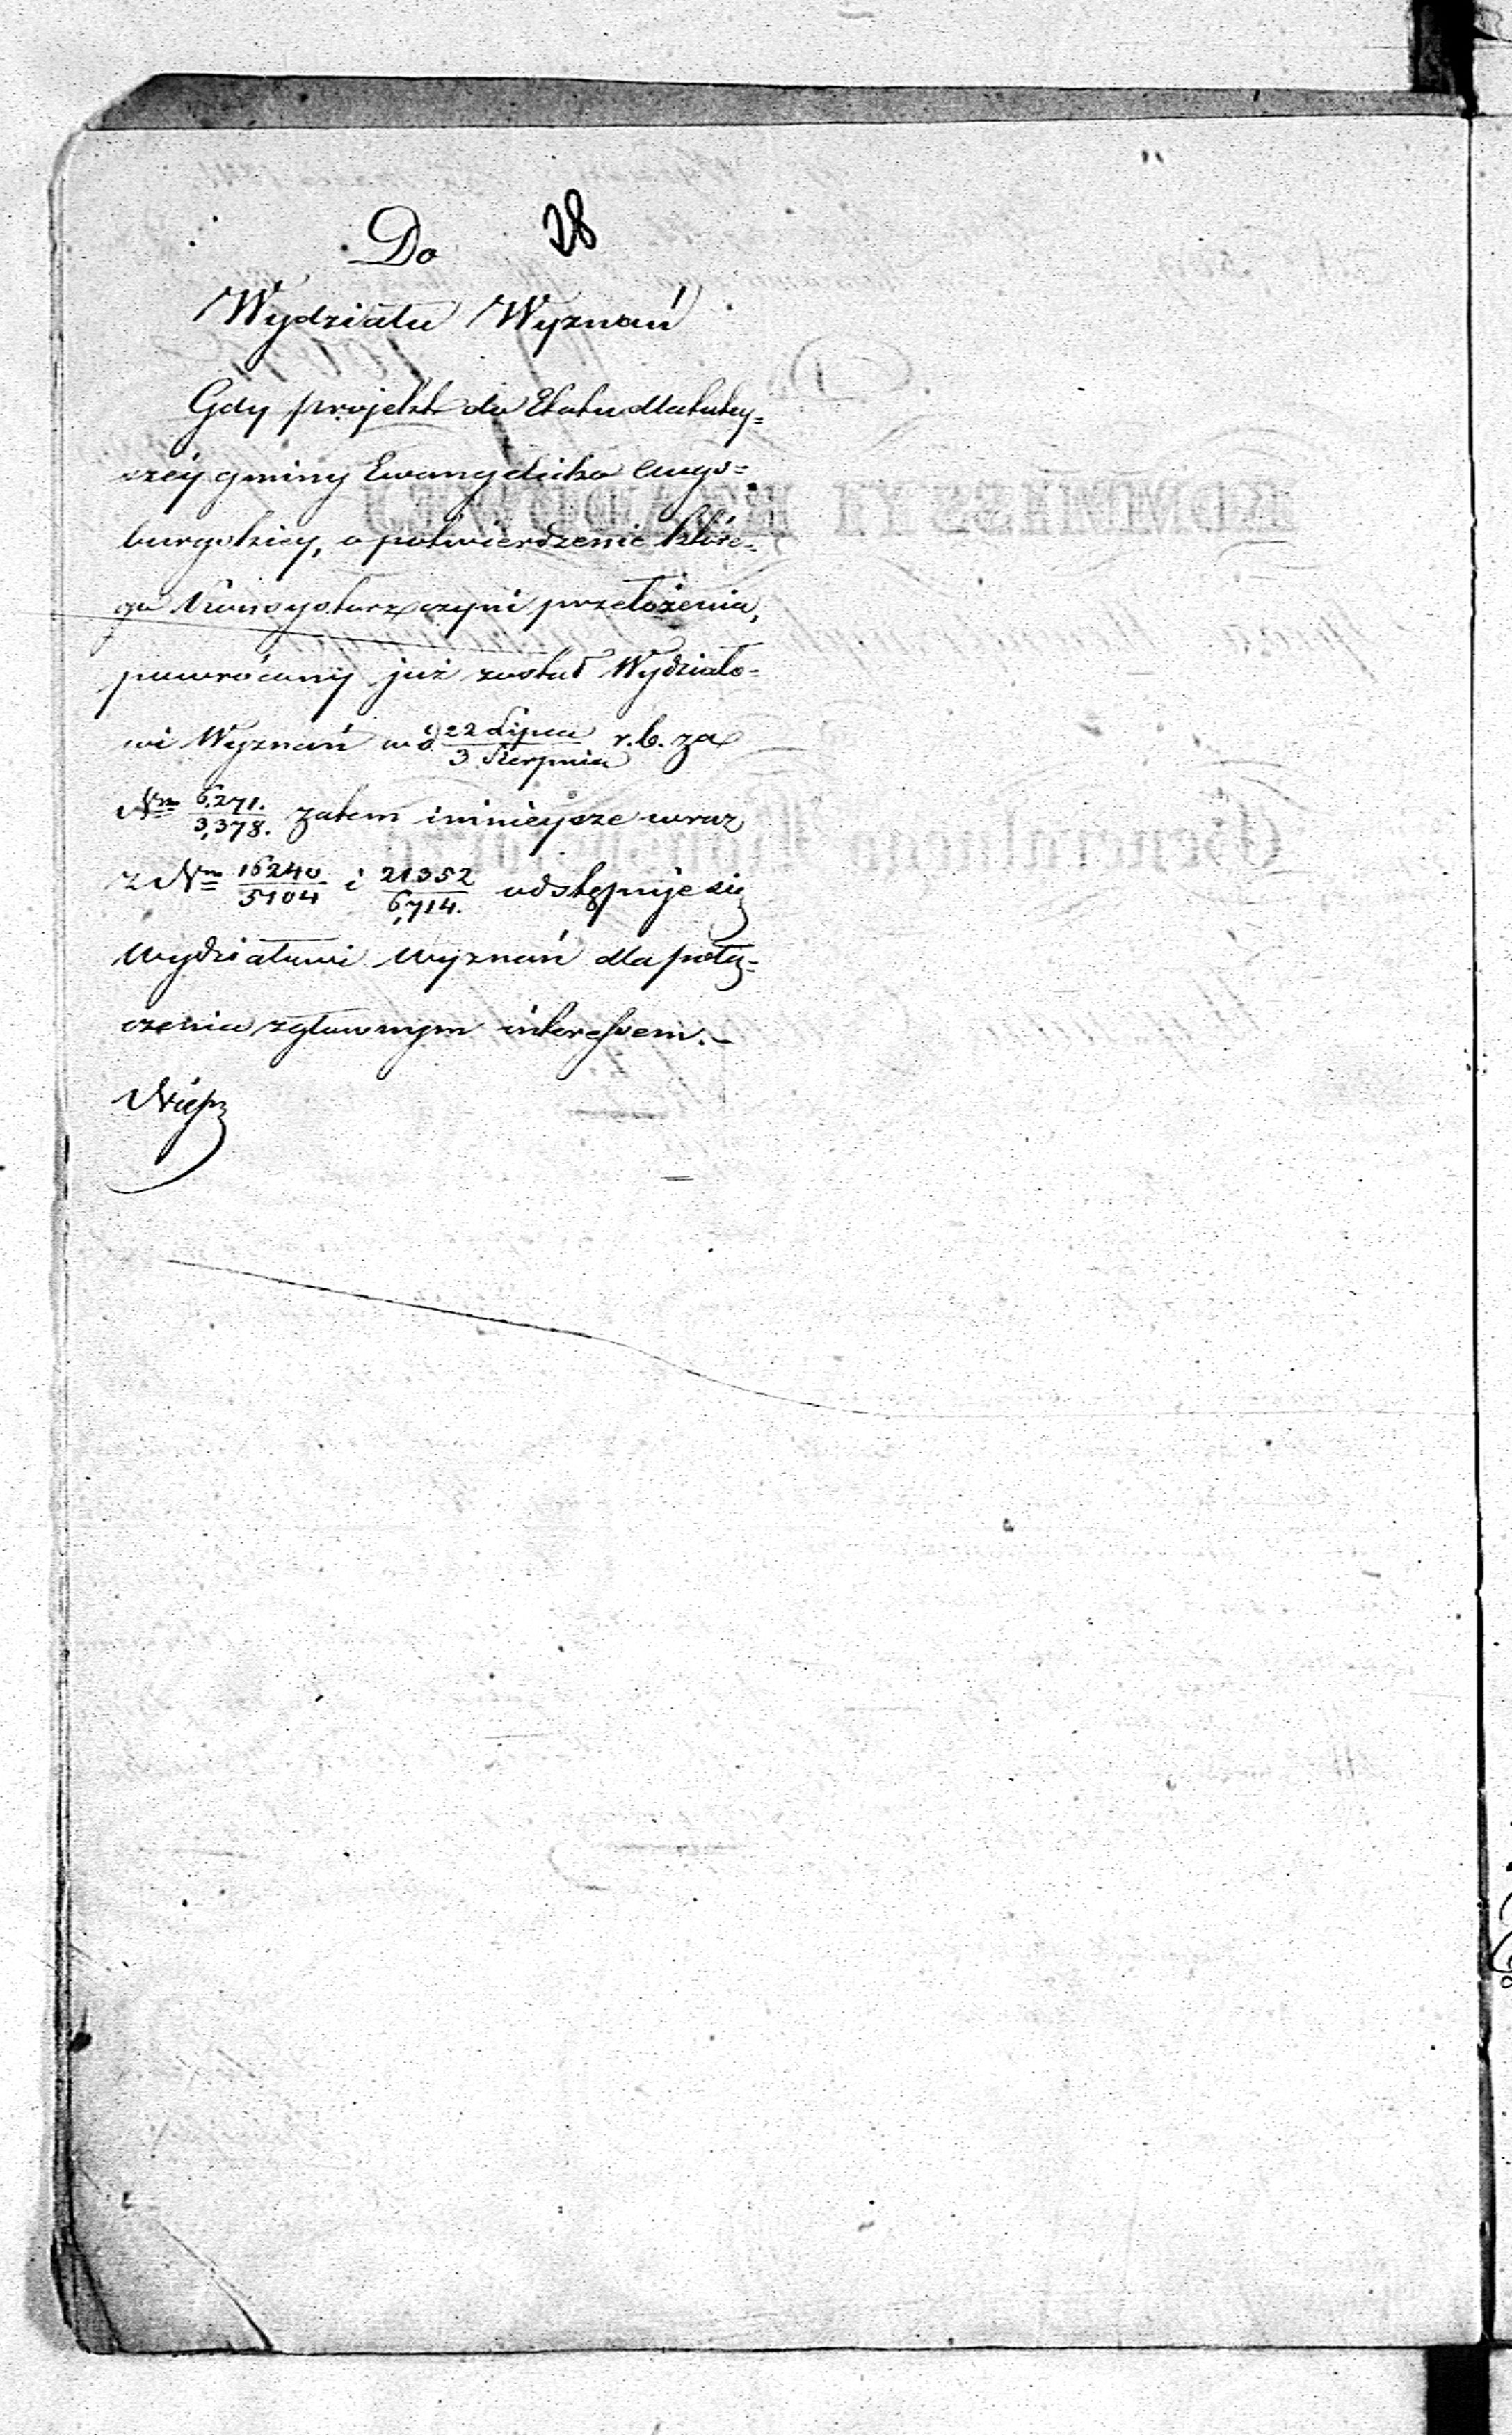 28
Do
Wydziału Wyznań
Gdy projekt do Etatu dla tutey=
szey gminy Ewangelicko Augs=
burgskiey, o potwierdzenie które=
go Konsystorz czyni przełożenia,
powrócony już został Wydziało=
wi Wyznań w d. 22 Lipca / 3 Sierpnia r. b. za
Nrm 6,271. / 3,378. zatem i niniejsze wraz
z Nrm 16240 / 5104 i 21352 / 6,714. odstępuje się
Wydziałowi Wyznań dla połą=
czenia z głównym interessem.–